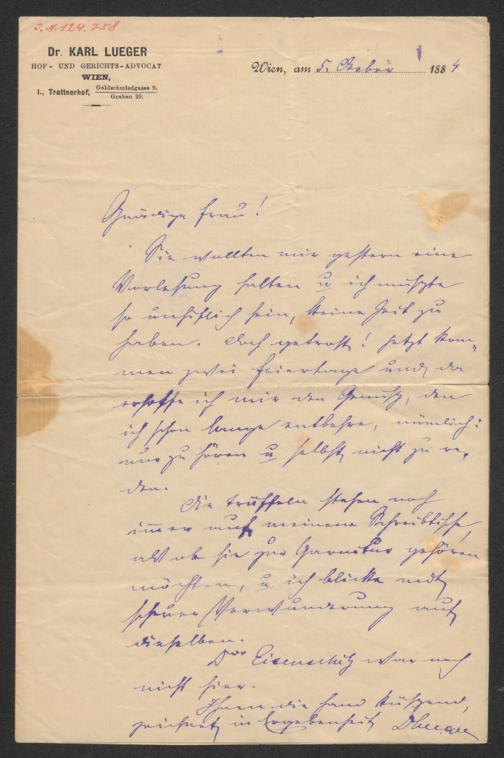 I.N. 124.758
Dr. KARL LUEGER
HOF- UND GERICHTS-ADVOCAT
WIEN,
I., Trattnerhof, Goldschmiedgasse 9.
Graben 29.
Wien, am 5. 1884
Gnädige Frau!
Sie wollten mir gestern eine
Vorlesung halten u ich mußte
so unhöflich sein, keine Zeit zu
haben. Doch getrost! Jetzt kom-
men zwei Feiertage und da
erhoffe ich mir den Genuß, den
ich schon lange entbehre, nämlich:
nur zu hören u selbst nicht zu re-
den.
Die Trüffeln stehen noch
immer auf meinem Schreibtische,
als ob sie zur Garnitur gehören
möchten, u ich blicke mit
scheuer Verwunderung auf
dieselben.
Dr Eisenschitz war noch
nicht hier.
Ihnen die Hand küssend,
zeichnet in Ergebenheit DLueger